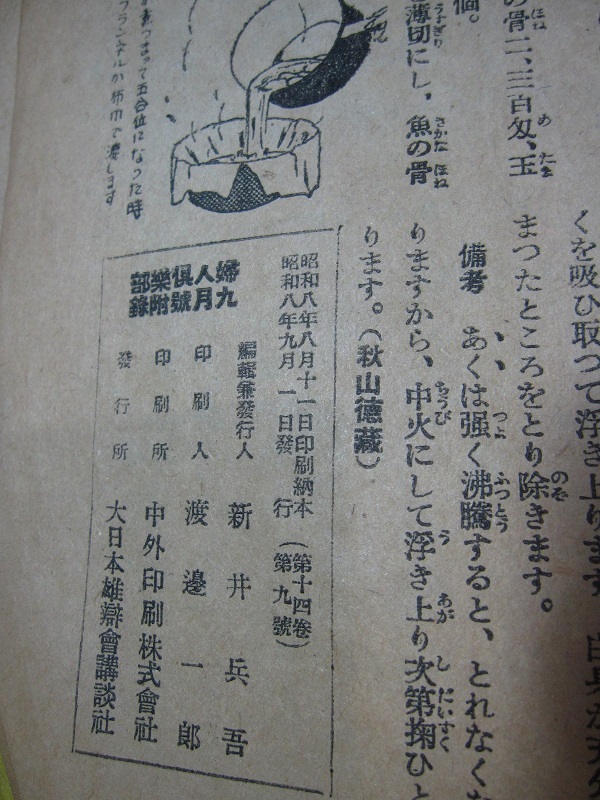 個。
の骨二、三百匁、玉
を薄切にし、魚の骨
つまつて五合位になつた時
フランネルか布巾で漉します
くを吸ひ取つて浮き上ります
まつたところをとり除きます。
備考 あくは强く沸騰すると、とれなくな
りますから、中火にして浮き上り次第掬ひと
ります。（秋山德藏）
昭和八年八月十一日印刷納本（第十四卷
昭和八年九月一日發行 第九號）
婦人俱樂部
九月號附錄
編輯兼發行人 新井兵吾
印刷人 渡邊一郎
印刷所 中外印刷株式會社
發行所 大日本雄辯會講談社